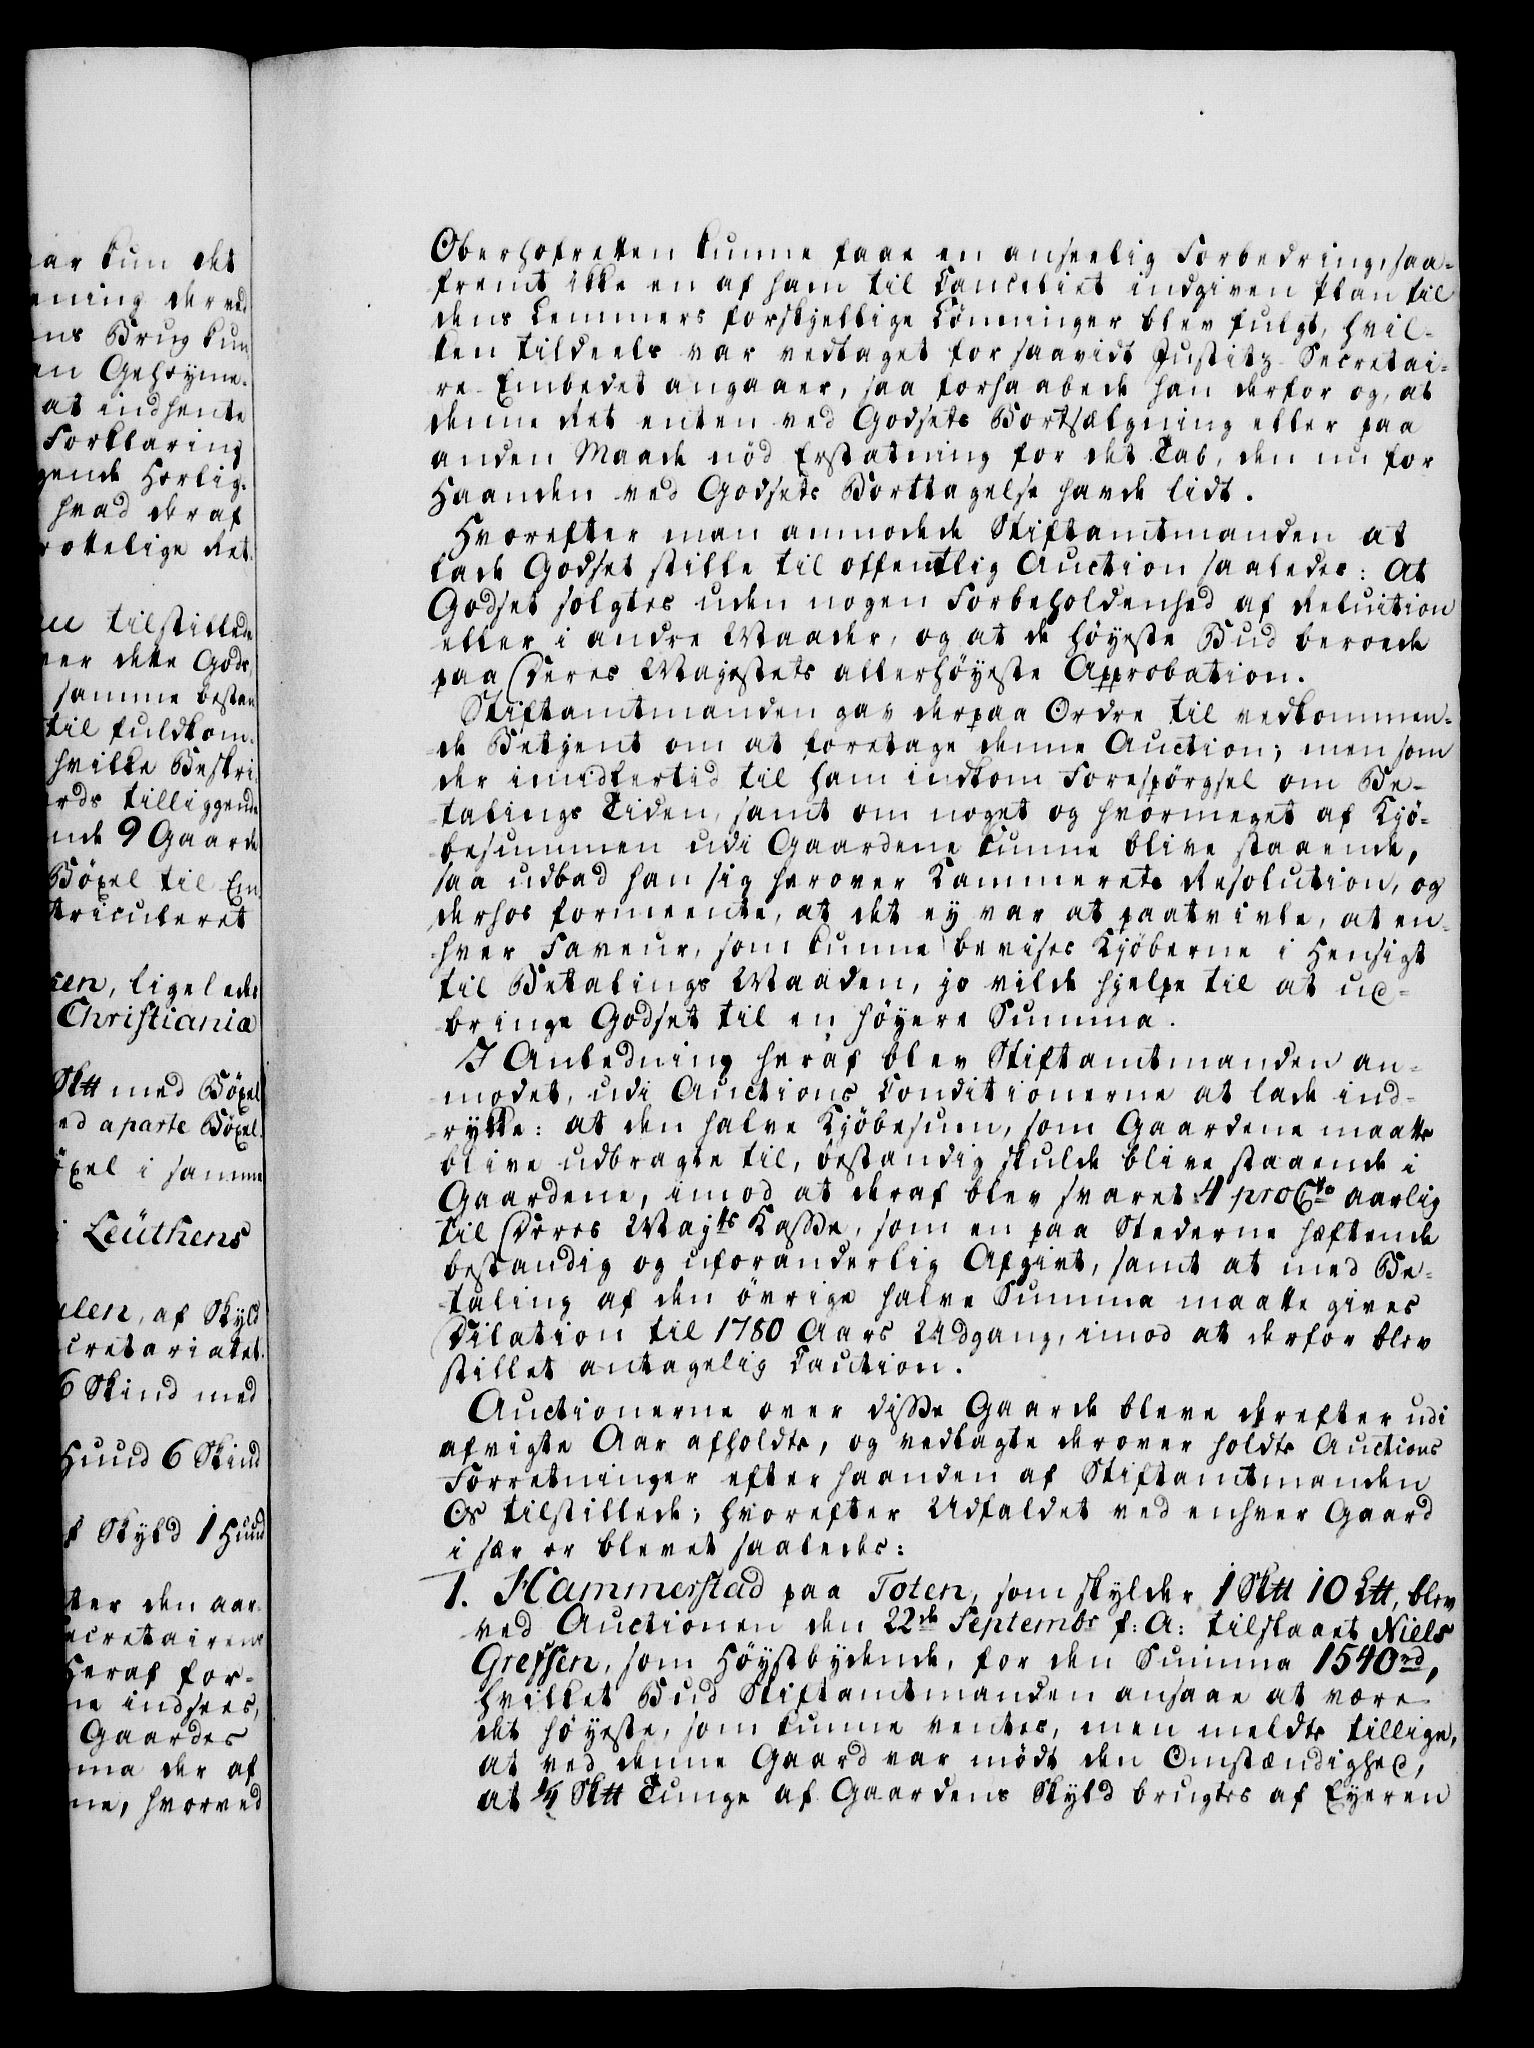 ar kun det
ening derved
ns Brug kun
en Gehöyme-
at indhente
Forklaring
gende Herlig-
hvad deraf
rettelige Ret.
tilstillede
er dette Gods,
samme bestaa
til fuldkom-
hvilke Beskri
rds tilliggende
nde 9 Gaarde
Böxel til Em
triculeret
sen, ligeledes
Christiania
Sktt med Böxel
ed aparte Böxel.
öxel i samme
Leüthens
elen, af Skyld
cretariatet.
6 Skind med
Huud 6 Skind
f Skyld 1 Huud
ter den aar-
ecretairens
Heraf for-
ne indsees,
Gaardes
ma der af
ne, hvorved
Oberhofretten kunne faae en anseelig Forbedring, saa-
fremt ikke en af ham til Canceliet indgiven Plan til
dens Lemmers forskjellige Lönninger blev fulgt, hvil-
ken tildeels var vedtaget for saavidt Justitz-Secretai-
re-Embedet angaaer, saa forhaabede han derfor og, at
denne Ret enten ved Godsets Bortsælgning eller paa
anden Maade nöd Erstatning for det Tab, den nu for
Haanden ved Godsets Borttagelse havde lidt.
Hvorefter man anmodede Stiftamtmanden at
lade Godset stille til offentlig Auction saaledes: At
Godset solgtes uden nogen Forbeholdenhed af Reluition
eller i andre Maader, og at de höyeste Bud beroede
paa Deres Majestets allerhöyeste Approbation.
Stiftamtmanden gav derpaa Ordre til vedkommen-
de Betjent om at foretage denne Auction; men som
der imidlertid til ham indkom Forespörgsel om Be-
talings Tiden, samt om noget og hvormeget af Kjö-
besummen udi Gaardene kunne blive staaende,
saa udbad han sig herover Kammerets Resolution, og
derhos formeente, at det ey var at paatvivle, at en-
hver Faveur, som kunne bevises Kjöberne i Hensigt
til Betalings Maaden, jo vilde hjelpe til at ud-
bringe Godset til en höyere Summa.
I Anledning heraf blev Stiftamtmanden an-
modet, udi Auctions Conditionerne at lade ind-
rykke: at den halve Kjöbesum, som Gaardene maatte
blive udbragte til, bestandig skulde blive staaende i
Gaardene, imod at deraf blev svaret 4 pro Cto aarlig
til Deres Majts Kasse, som en paa Stederne hæftende
bestandig og uforanderlig Afgivt, samt at med Be-
taling af den övrige halve Summa maatte gives
Dilation til 1780 Aars Udgang, imod at derfor blev
stillet antagelig Caution.
Auctionerne over disse Gaarde bleve derefter udi
afvigte Aar afholdte, og vedtagte derover holdte Auctions
Forretninger efterhaanden af Stiftamtmanden
Os tilstillede; hvorefter Udfaldet ved enhver Gaard
i sær er blevet saaledes:
1. Hammerstad paa Toten, som skylder 1 Sktt 10 Ltt, blev
ved Auctionen den 22de Septembr f: A: tilslaaet Niels
Grefsen, som Höystbydende, for den Summa 1540rd,
hvilket Bud Stiftamtmanden ansaae at være
det höyeste, som kunne ventes, men meldte tillige,
at ved denne Gaard var mödt den Omstændighed,
at ¼ Sktt Tunge af Gaardens Skyld brugtes af Eyeren